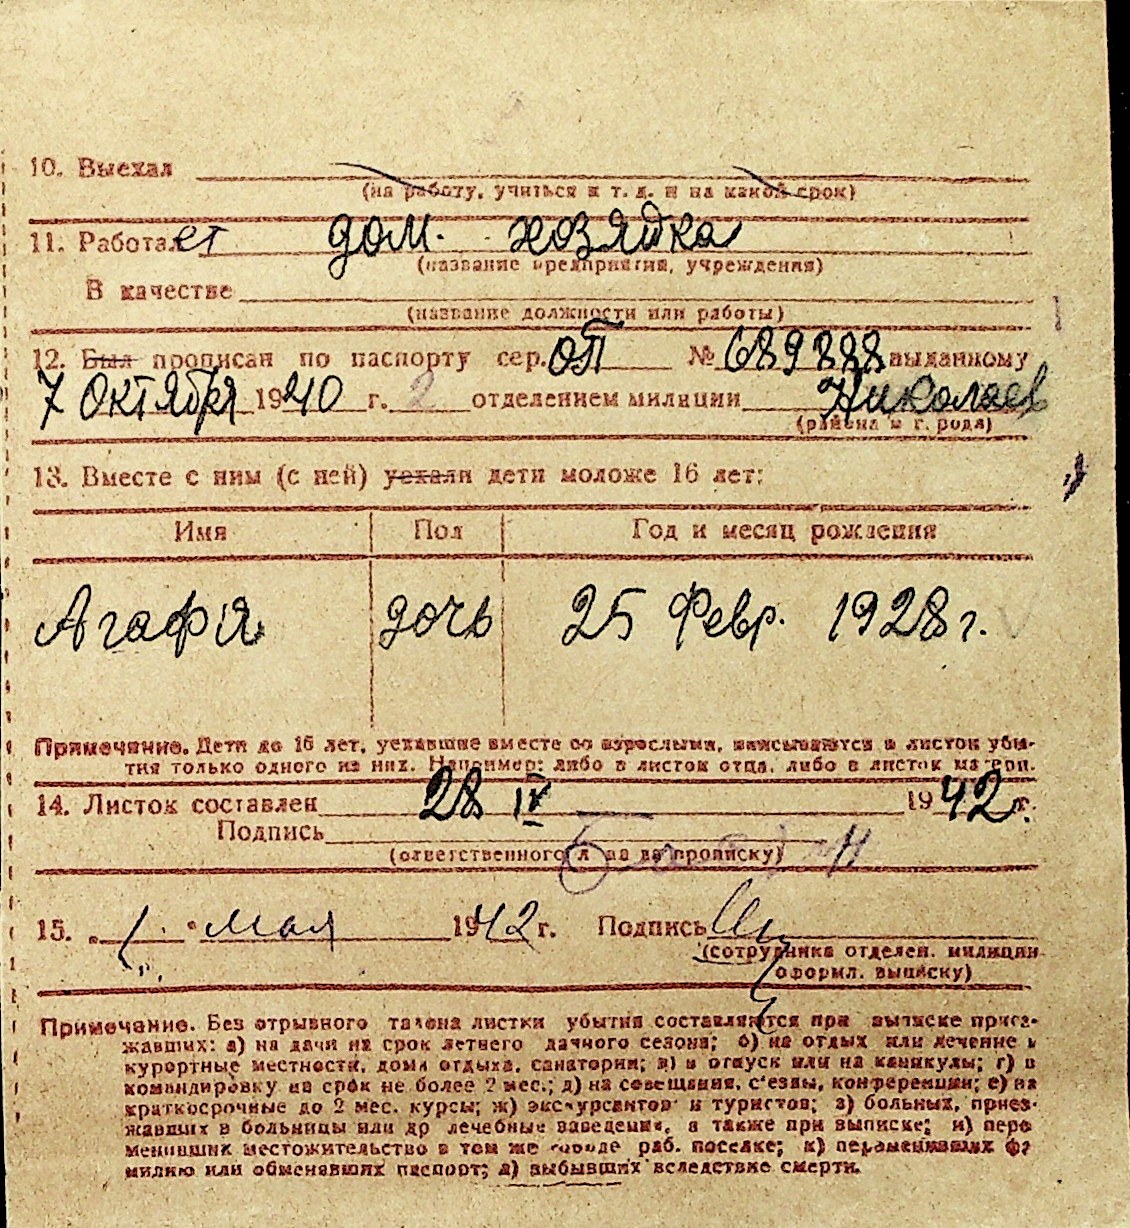 10. Выехал
(на работу, учиться и т. д. и на какой срок)
11. Работает дом. хозяйка
(название предприятия, учреждения)
В качестве
(название должности или работы)
12. Был прописан по паспорту сер. ОП № 689888 выданному
7 Октября 1940 г. 2 отделением милиции Николаев
(района и г. рода)
13. Вместе с ним (с ней) уехали дети моложе 16 лет:
Имя Пол Год и месяц рождения
Агафія дочь 25 Февр. 1928 г.
Примечание. Дети до 16 лет, уехавшие вместе со взрослыми, вписываются в листок убы-
тия только одного из них. Например: либо в листок отца, либо в листок матери.
14. Листок составлен 28 IV 1942 г.
Подпись
(ответственного л ца за прописку)
15. „1." мая 1942 г. Подпись
(сотрудника отделен. милиции
оформл. выписку)
Примечание. Без отрывного талона листки убытия составляются при выписке приез-
жавших: а) на дачи на срок летнего дачного сезона; б) на отдых или лечение в
курортные местности, дома отдыха, санатории; в) в отпуск или на каникулы; г) в
командировку на срок не более 2 мес.; д) на совещания, с'езды, конференции; е) на
краткосрочные до 2 мес. курсы; ж) экскурсантов и туристов; з) больных, приез-
жавших в больницы или др лечебные заведения, а также при выписке; и) пере
менивших местожительство в том же городе раб. поселке; к) переменивших фа
милию или обменявших паспорт; л) выбывших вследствие смерти.